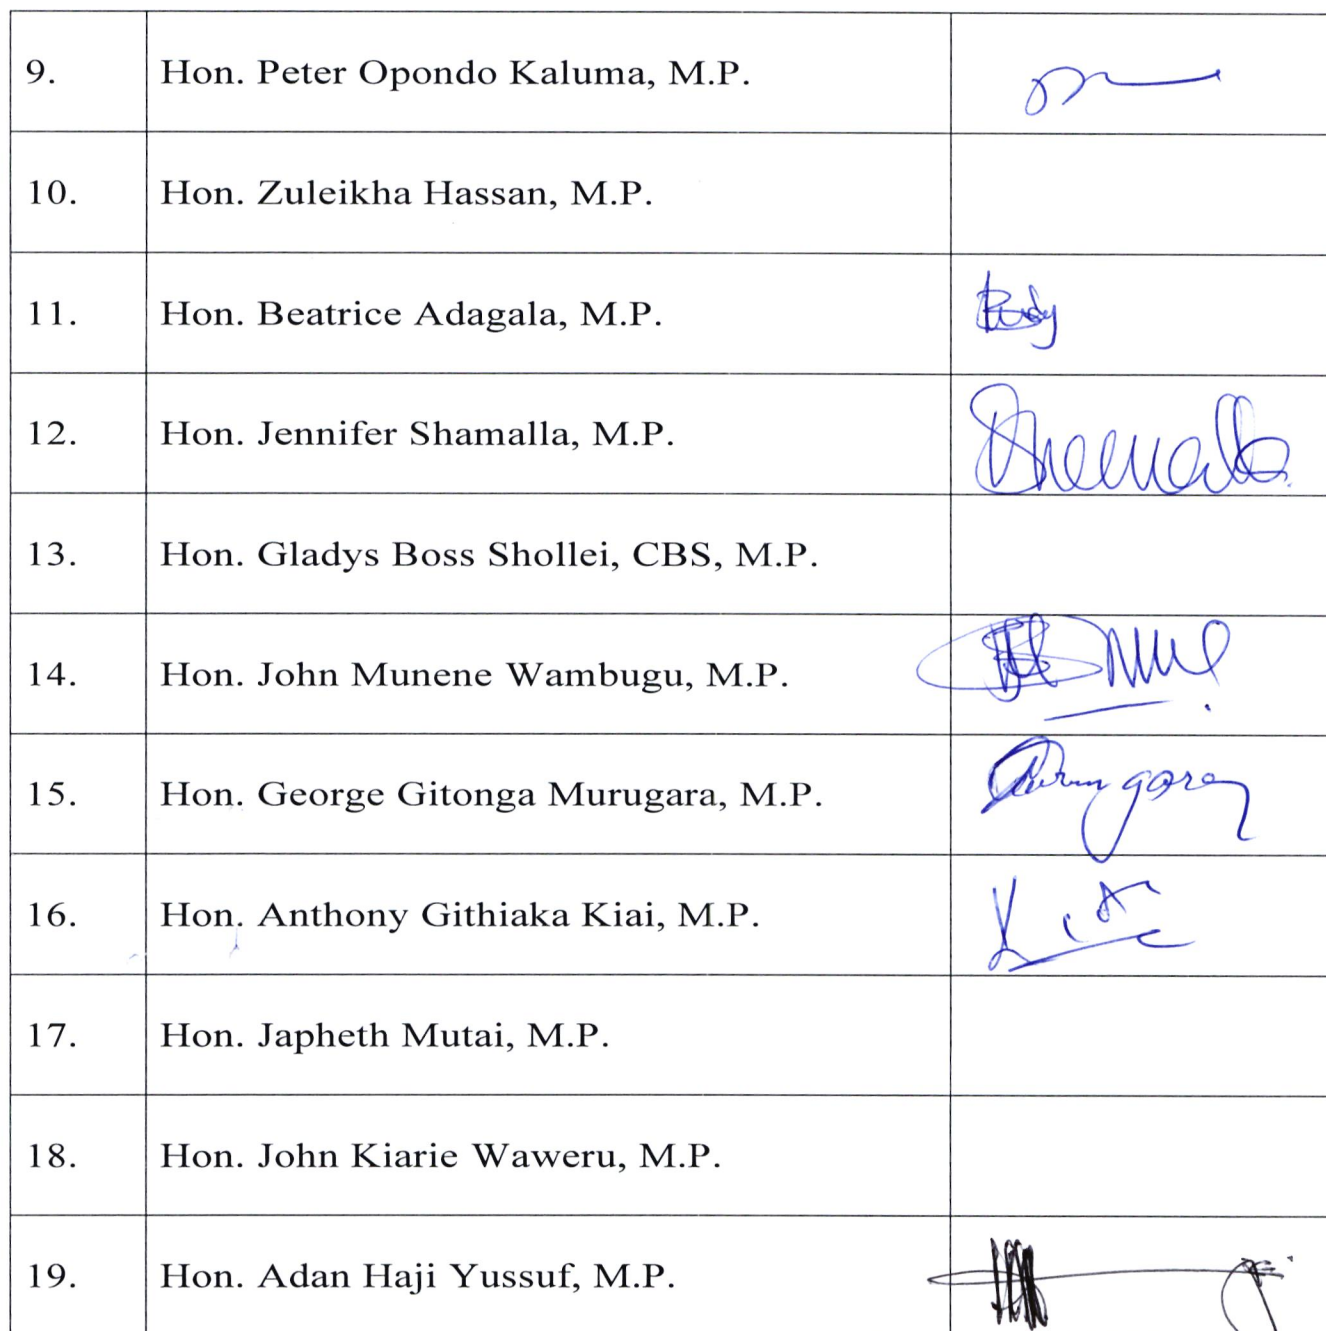 9. Hon. Peter Opondo Kaluma, M.P.
10. Hon. Zuleikha Hassan, M.P.
11. Hon. Beatrice Adagala, M.P.
12. Hon. Jennifer Shamalla, M.P.
13. Hon. Gladys Boss Shollei, CBS, M.P.
14. Hon. John Munene Wambugu, M.P.
15. Hon. George Gitonga Murugara, M.P.
16. Hon. Anthony Githiaka Kiai, M.P.
17. Hon. Japheth Mutai, M.P.
18. Hon. John Kiarie Waweru, M.P.
19. Hon. Adan Haji Yussuf, M.P.